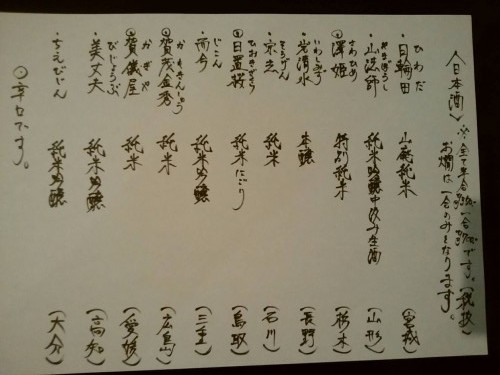 〈日本酒〉※全て半合 一合 です。(税抜)
お燗は一合のみとなります。
・日輪田 ひわだ 山廃純米 (宮城)
・山法師 やまほうし 純米吟醸中汲み生酒 (山形)
○澤姫 さわひめ 特別純米 (栃木)
・岩清水 いわしみず 本醸 (長野)
・宗玄 そうげん 純米 (石川)
○日置桜 ひおきざくら 純米にごり (鳥取)
・而今 じこん 純米吟醸 (三重)
○賀茂金秀 かもきんしゅう 純米 (広島)
○賀儀屋 かぎや 純米 (愛媛)
・美丈夫 びじょうぶ 純米吟醸 (高知)
・ちえびじん 純米吟醸 (大分)
○辛口です。